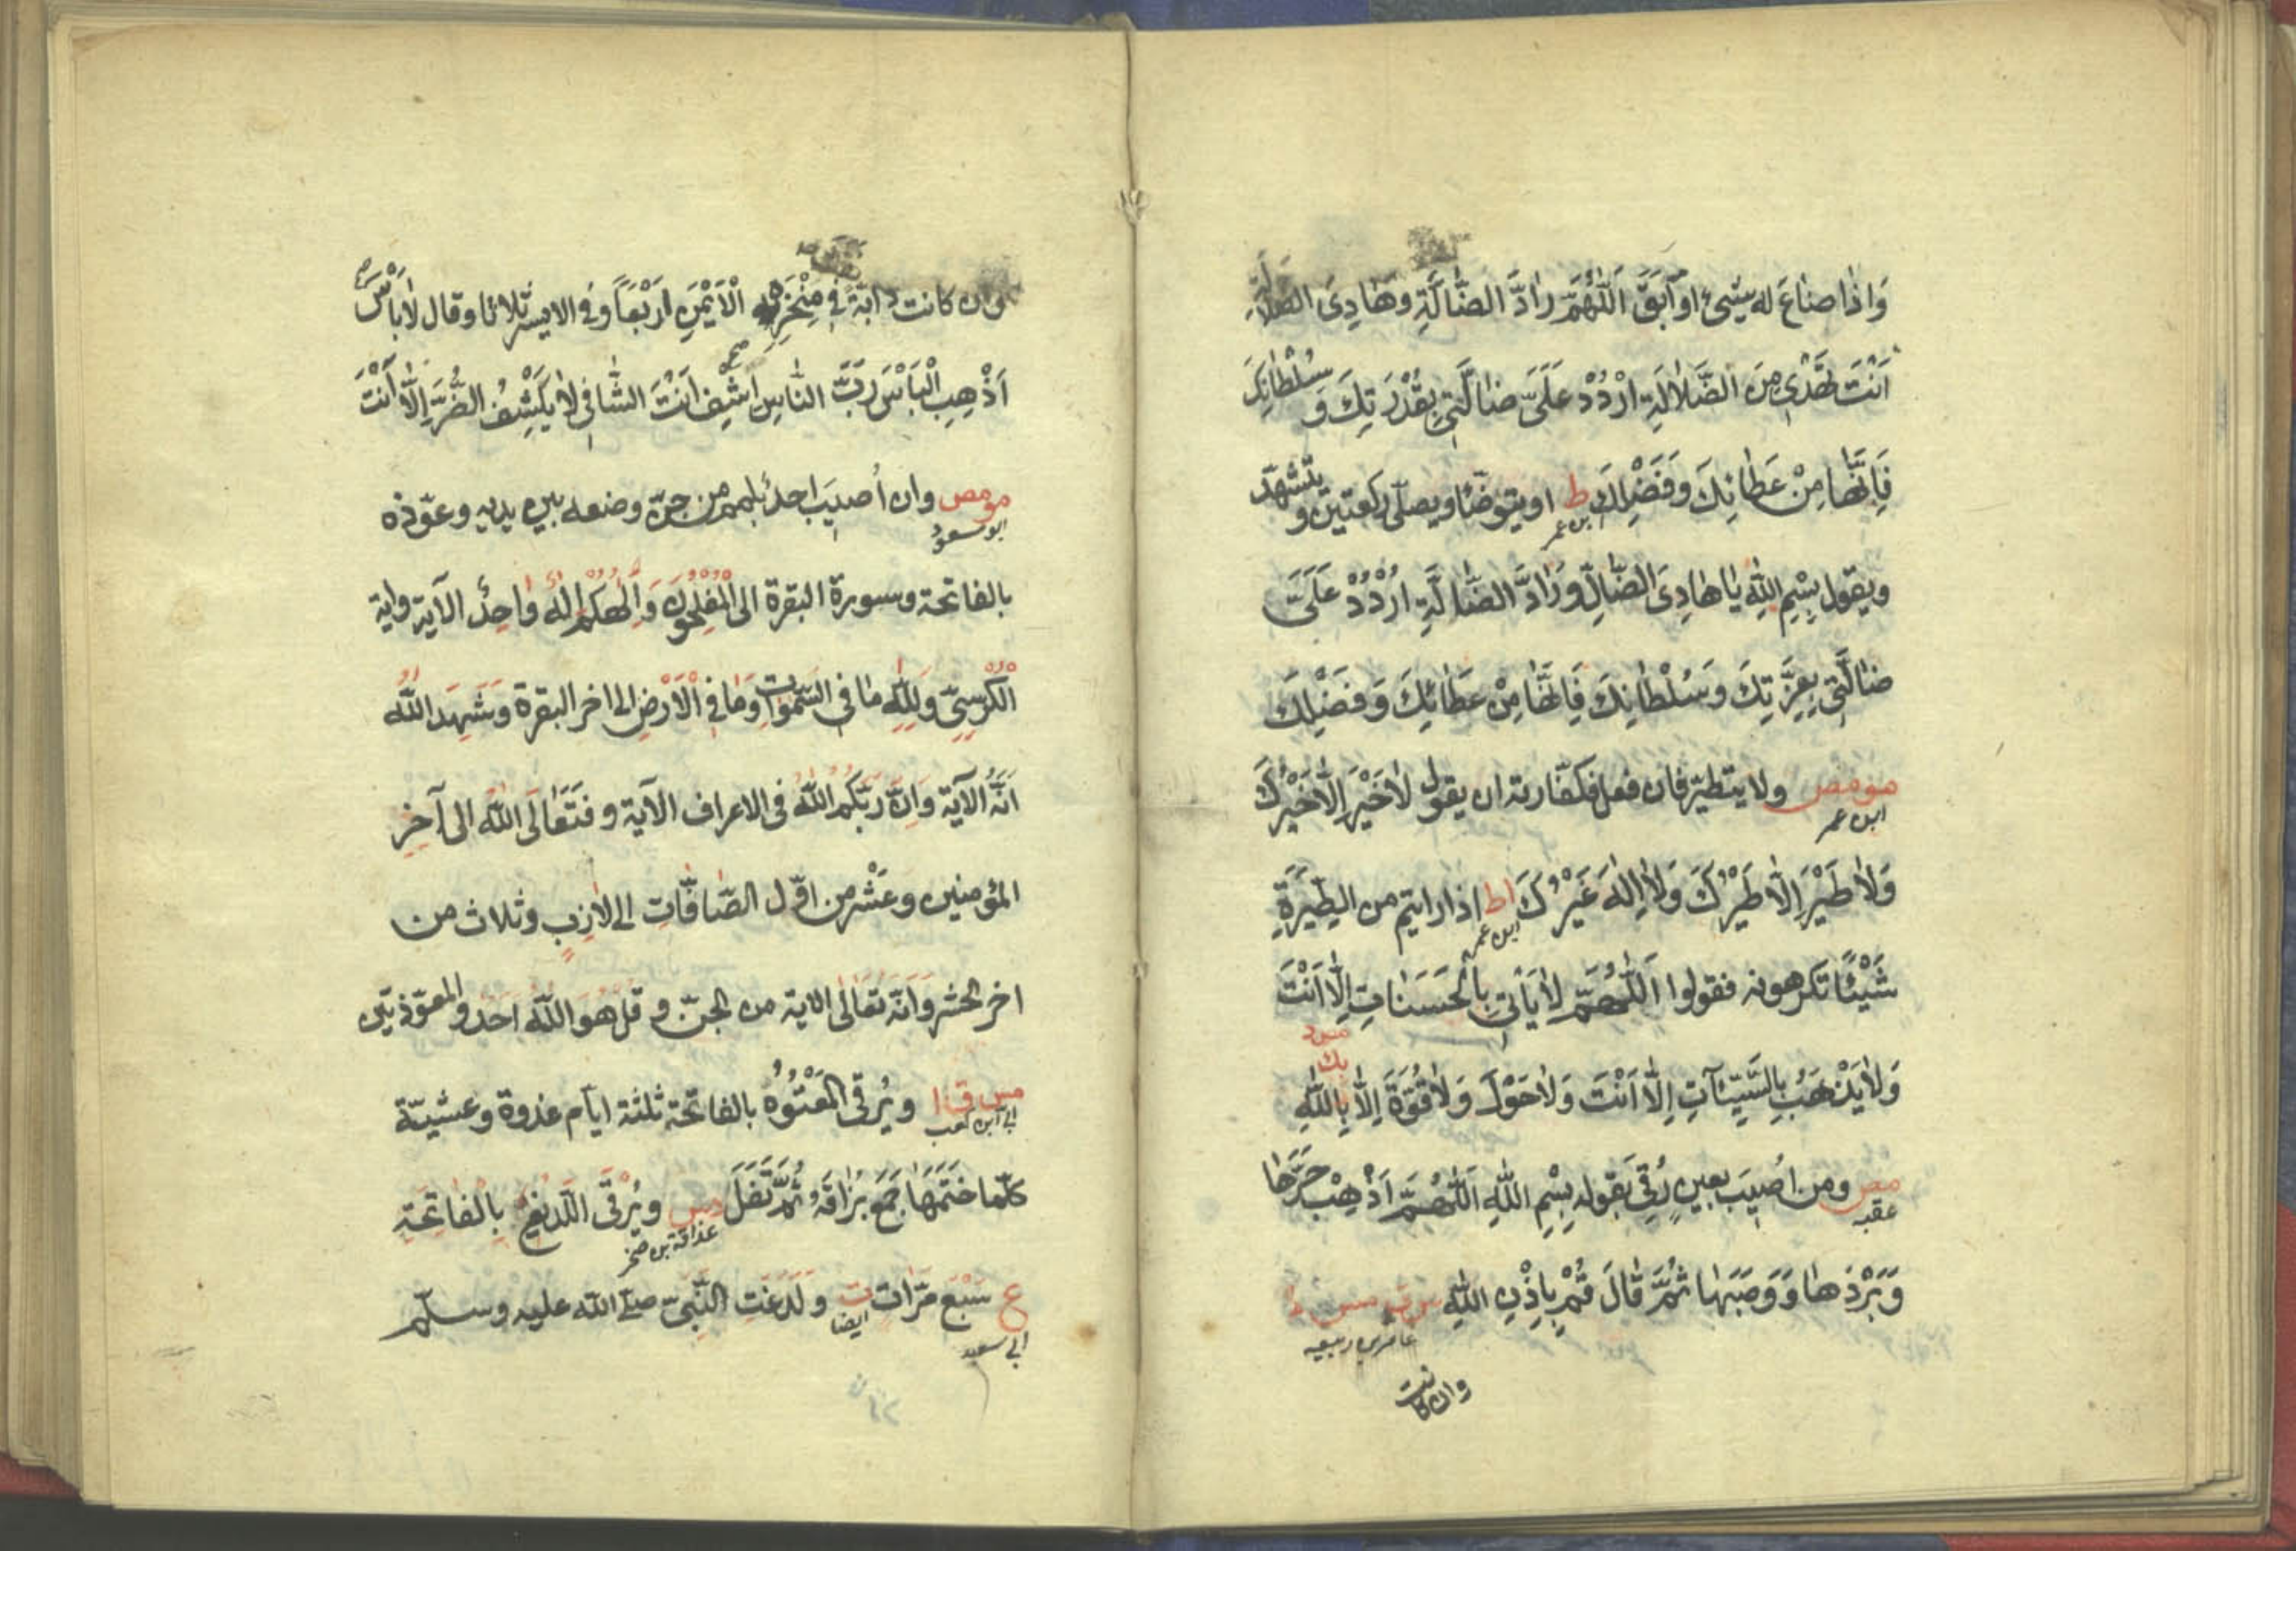 وَاِذَا ضَاعَ له شَیْءٌ او اَبَقَ اَللّٰهُمَّ رَادَّ الضَّالَّةِ وَهَادِيَ الضَّلَالَةِ
اَنْتَ تَهْدِي مِنَ الضَّلَالَةِ ارْدُدْ عَلَيَّ ضَالَّتِي بِقُدْرَتِكَ وَسُلْطَانِكَ
فَاِنَّهَا مِنْ عَطَائِكَ وَفَضْلِكَ ط او يتوضّأ ويصلّي ركعتين و يتشهّد
ابن عمر
ويقول بِسْمِ اللّٰهِ يَا هَادِيَ الضَّالِّ وَرَادَّ الضَّالَّةِ ارْدُدْ عَلَيَّ
ضَالَّتِي بِعِزَّتِكَ وَسُلْطَانِكَ فَاِنَّهَا مِنْ عَطَائِكَ وَفَضْلِكَ
مو مص ولا يتطيّر فان فعل فكفّارته ان يقول لَاخَيْرَ اِلَّا خَيْرُكَ
ابن عمر
وَلَا طَيْرَ اِلَّا طَيْرُكَ وَلَا اِلٰهَ غَيْرُكَ ا ط اذا رايتم من الطِّيَرَةِ
ابن عمر
شَيْئًا تكرهونه فقولوا اَللّٰهُمَّ لَا يَأْتِي بِالْحَسَنَاتِ اِلَّا اَنْتَ
وَلَا يَذْهَبُ بِالسَّيِّئَاتِ اِلَّا اَنْتَ وَلَا حَوْلَ وَلَا قُوَّةَ اِلَّا بِاللّٰهِ
بك
مص ومن اُصِيبَ بعينٍ رُقِيَ بقوله بِسْمِ اللّٰهِ اَللّٰهُمَّ اَذْهِبْ حَرَّهَا
عقبه
وَبَرْدَهَا وَوَصَبَهَا ثُمَّ قَالَ قُمْ بِاِذْنِ اللّٰهِ س ق مس ط
عامر بن ربيعه
وان كانت
وان كانت دابّة في مِنْخَرِه الْاَيْمَنِ اَرْبَعًا وَفي الايسر ثلاثا وقال لَا بَأْسَ
اَذْهِبِ الْبَأْسَ رَبَّ النَّاسِ اشْفِ اَنْتَ الشَّافِي لَا يَكْشِفُ الضُّرَّ اِلَّا اَنْتَ
مو مص وان اُصيبَ احدٌ بلمم من جنّ وضعه بين يديه وعوّذه
ابو مسعود
بالفاتحة وسورة البقرة الى الْمُفْلِحُونَ وَاِلٰهُكُمْ اِلٰهٌ وَاحِدٌ الآية واية
الْكُرْسِيِّ وَلِلّٰهِ مَا فِي السَّمٰوَاتِ وَمَا فِي الْاَرْضِ الى اخر البقرة وَشَهِدَ اللّٰهُ
اَنَّهُ الآية وَاِنَّ رَبَّكُمُ اللّٰهُ في الاعراف الآية و فَتَعَالَى اللّٰهُ الى آخِرِ
المؤمنين وعَشْر من اوّل الصَّافَّاتِ الى لَازِبٍ وثلاث من
اخر الحشر وَاَنَّهُ تَعَالٰى الاية من الجنّ و قُلْ هُوَ اللّٰهُ اَحَدٌ والمعوّذتين
مس ق ا ويُرقى الْمَعْتُوهُ بالفاتحة ثلثة ايّام غدوة وعشيّة
ابي ابن كعب
كلّما خَتَمَهَا جَمَعَ بُزَاقَهُ ثُمَّ تَفَلَ د س ويُرْقَى اللَّدِيغُ بِالْفَاتِحَةِ
ع سَبْعَ مَرَّاتٍ ت وَلَدَغَتِ النَّبِيَّ صلى الله عليه وسلّم
ابي سعيد ايضا